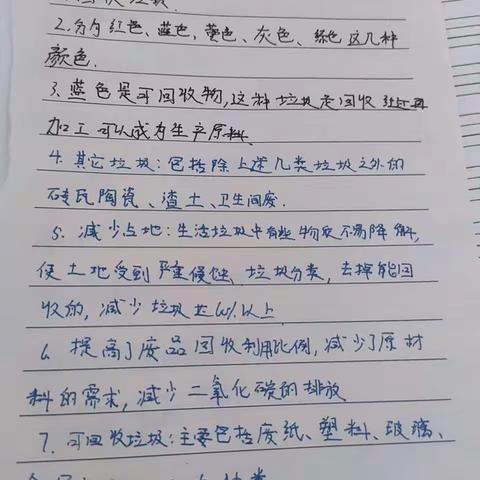 2.分为红色、蓝色、黄色、灰色、绿色这几种
颜色.
3.蓝色是可回收物,这种垃圾是回收
加工可以成为生产原料.
4.其它垃圾:包括除上述几类垃圾之外的
砖瓦陶瓷、渣土、卫生间废.
5.减少占地:生活垃圾中有些物质不易降解,
使土地受到严重侵蚀.垃圾分类,去掉能回
收的,减少垃圾达60%以上.
6.提高了废品回收利用比例,减少了原材
料的需求,减少二氧化碳的排放
7.可回收垃圾:主要包括废纸、塑料、玻璃、